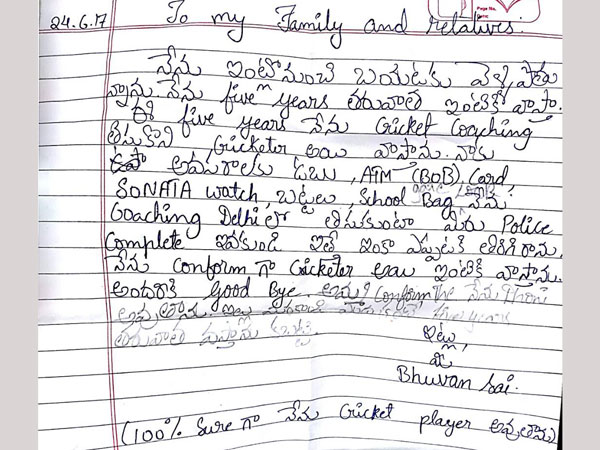 24.6.17
To my Family and relatives.
నేను ఇంటోనుంచి బయటకు వెళ్ళి పోతు
న్నాను. నేను five years తరువాత ఇంటికి వాస్తా.
ఈ five years నేను Cricket Coaching
తీసుకొని Cricketer అయి వాస్తాను. నాకు
అవసరాలకు డబు, ATM (BOB) Card
SONATA watch, బట్టలు, School Bag నేను
Coaching Delhi లో తీసుకుంటా మీరు Police
Complete ఇవకండి ఇతే ఇంకా ఎప్పుటికి తిరిగి రాను.
నేను Conform గా Cricketer అయి ఇంటికి వాస్తాను.
అందరికి Good Bye. Conform నేను
తరువాత
ఇట్లు,
మీ
Bhuvan Sai.
(100% Sure గా నేను Cricket player అవుతాను)